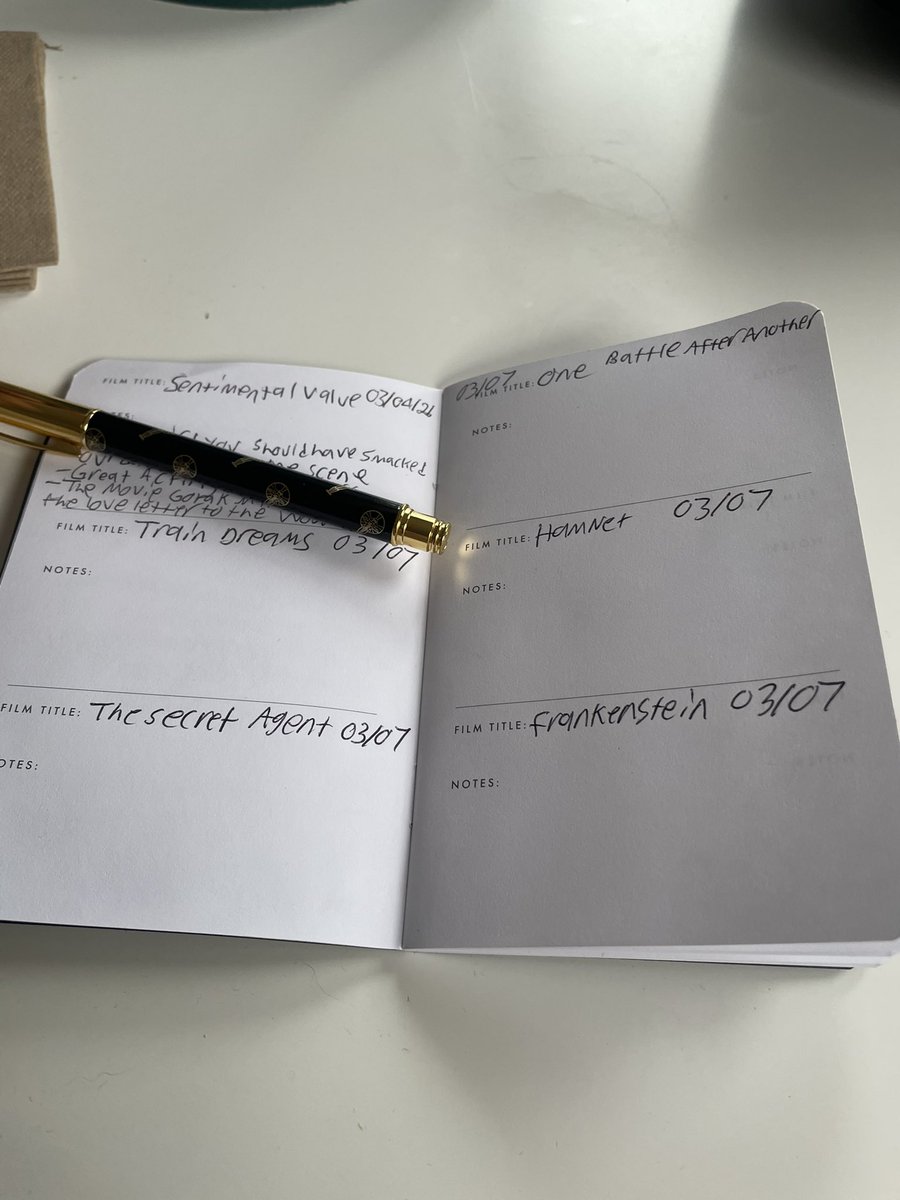 FILM TITLE: Sentimental Value 03/04/26
should have smacked
scene
- Great
- The Movie
the love letter to the
FILM TITLE: Train Dreams 03/07
NOTES:
FILM TITLE: The secret Agent 03/07
OTES:
03/07 FILM TITLE: One Battle After Another
NOTES:
FILM TITLE: Hamnet 03/07
NOTES:
FILM TITLE: Frankenstein 03/07
NOTES: